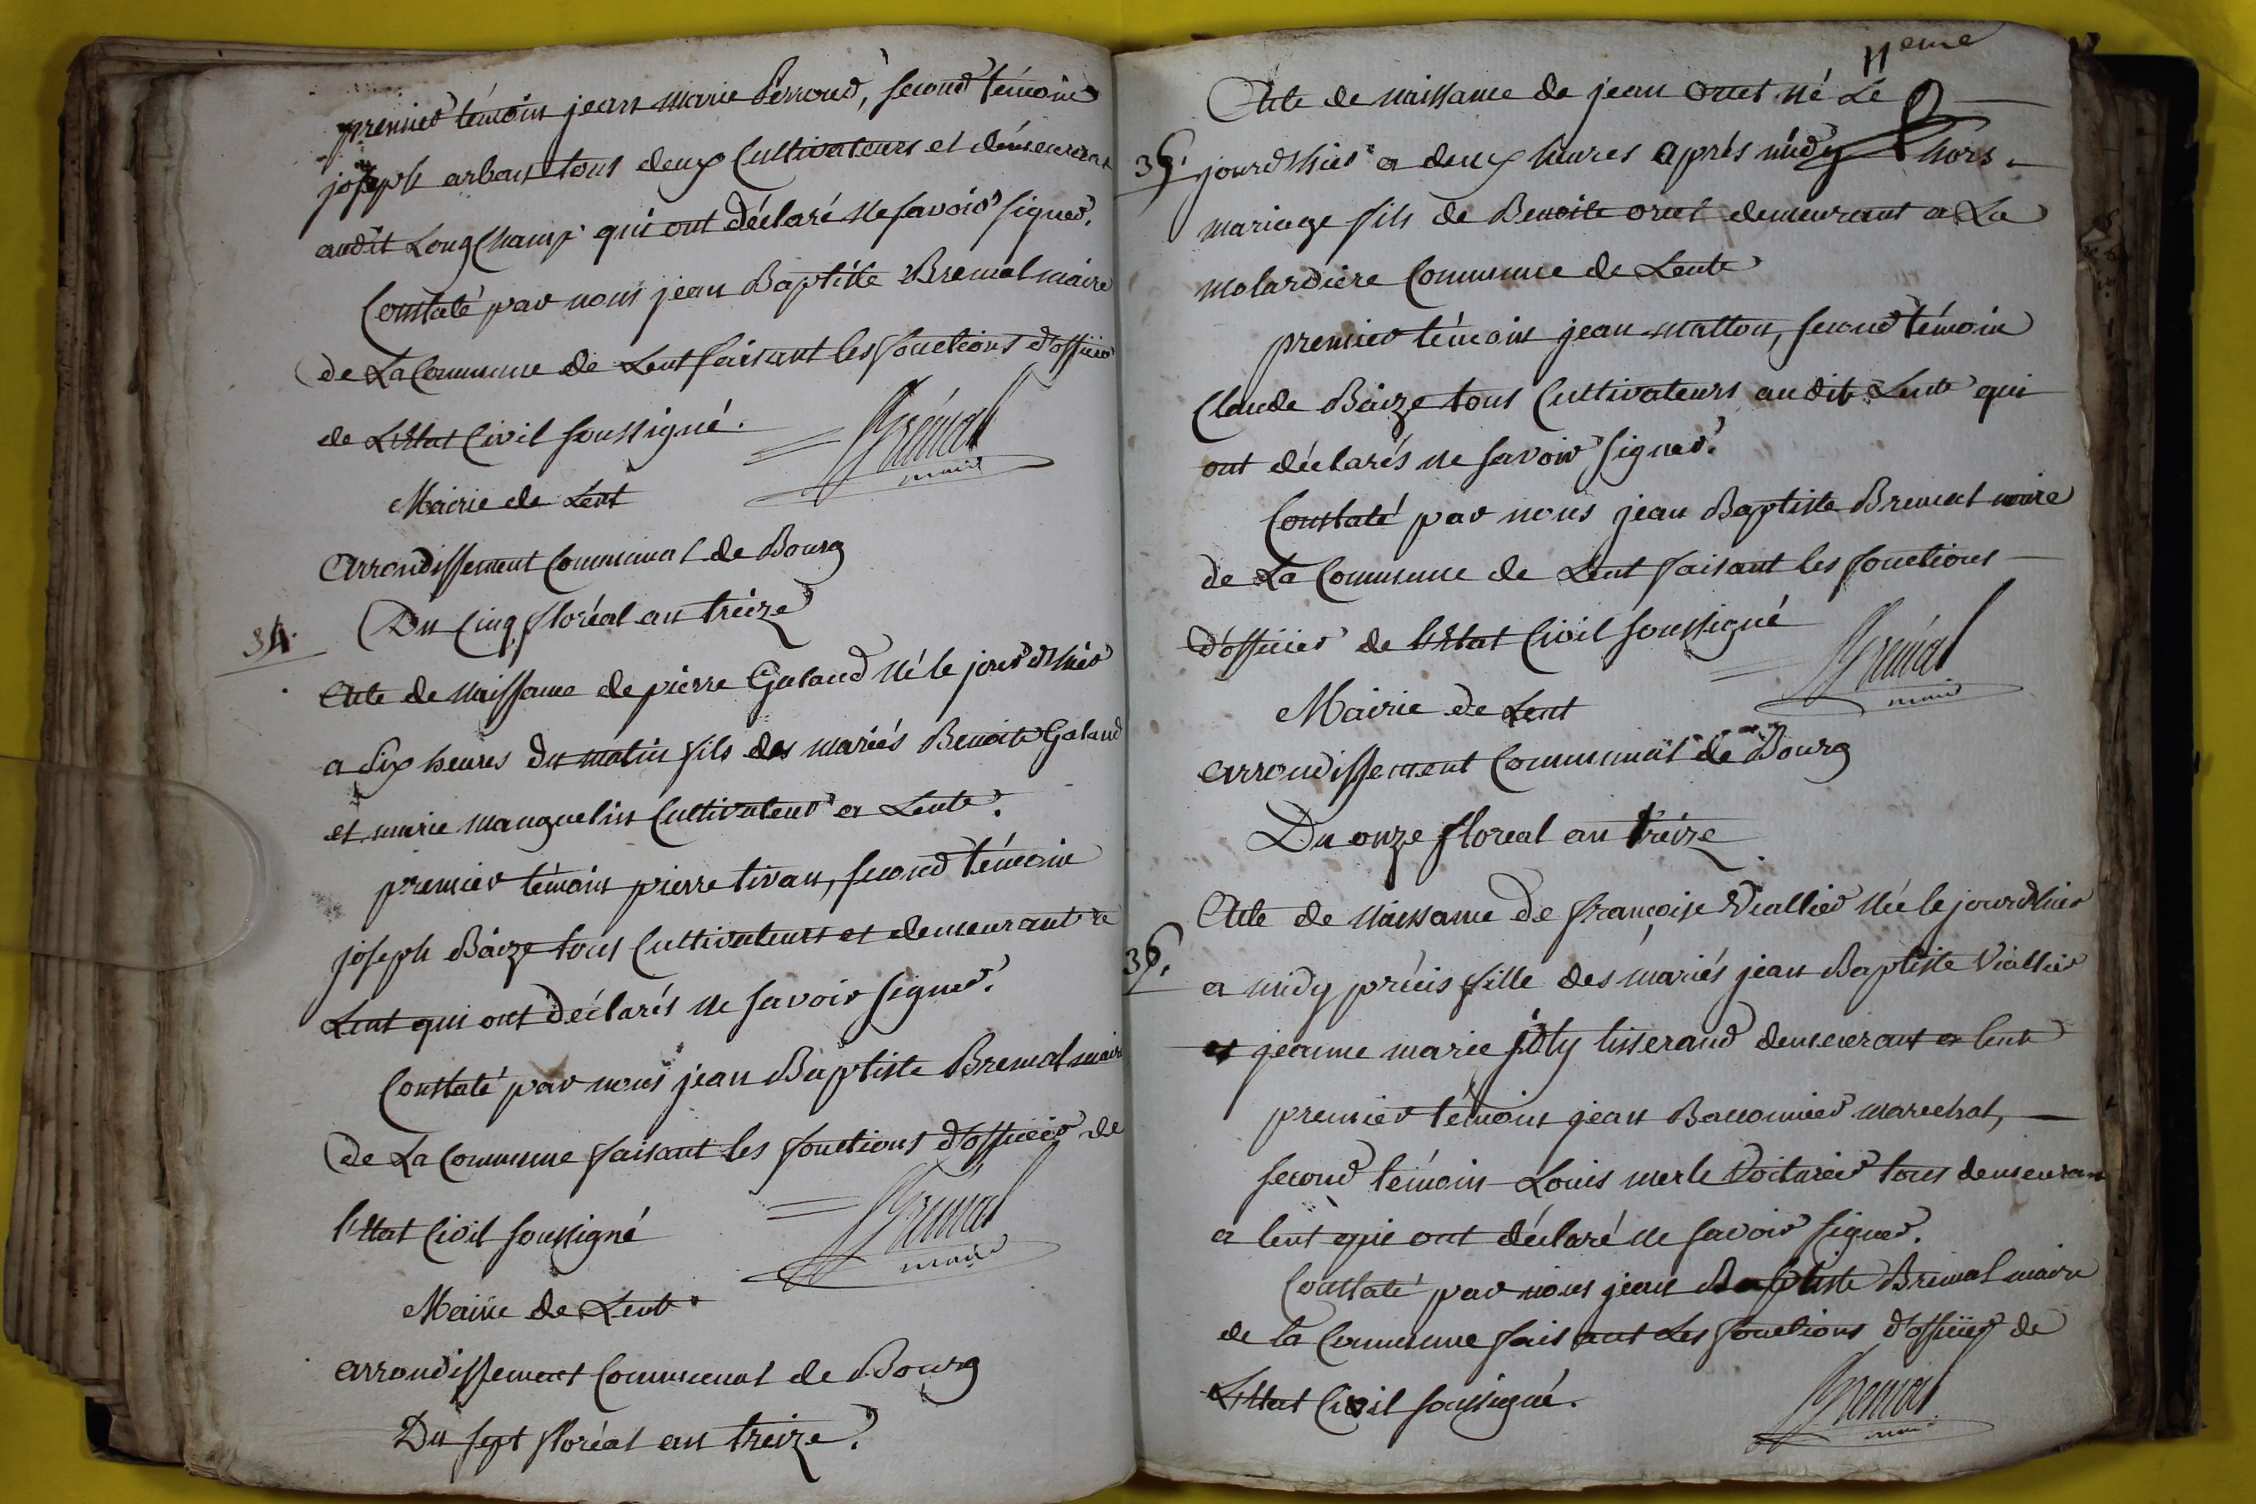 premier témoin jean marie Perroud, second témoin
joseph arban tous deux Cultivateurs et demeurant
audit LongChamp qui ont déclaré ne savoir signer.
Constaté par nous jean Baptiste Bremal maire
de La Commune de Lent faisant les fonctions d'officier
de L'Etat Civil soussigné.
Brémal
maire
Mairie de Lent
arrondissement Communal de Bourg
Du Cinq floréal an treize
34.
Acte de Naissance de pierre Galand Né le jourd'huier
a Six heures du matin fils des mariés Benoit Galand
et marie manguelin Cultivateur a Lent.
premier témoin pierre tivan, second témoin
joseph Baize tous Cultivateurs et demeurant
Lent qui ont déclarés ne savoir signer.
Constaté par nous jean Baptiste Bremal maire
de La Commune faisant les fonctions d'officier de
l'Etat Civil soussigné
Brémal
maire
Mairie de Lent
arrondissement Communal de Bourg
Du sept floréal an treize.
11eme
Acte de naissance de jean oret Né Le
35.
jourd'huier a deux heures après midy hors
mariage fils de Benoite oret demeurant a La
molardiere Commune de Lent
premier témoin jean matton, second témoin
Claude Baize tous Cultivateurs audit Lent qui
ont déclarés ne savoir signer.
Constaté par nous jean Baptiste Bremal maire
de La Commune de Lent faisant les fonctions
d'officier de l'Etat Civil soussigné
Brémal
maire
Mairie de Lent
arrondissement Communal de Bourg
Du onze floreal an treize
Acte de Naissance de françoise Viallier Née le jourd'huier
36.
a midy précis fille des mariés jean Baptiste Viallier
et jeanne marie joly tisserand demeurant a lent
premier témoin jean Baconnier marechal,
second témoin Louis merle Voiturier tous demeurant
a lent qui ont déclaré ne savoir signer.
Constaté par nous jean Baptiste Bremal maire
de la Commune faisant Les fonctions d'officier de
L'Etat Civil soussigné.
Bremal
maire